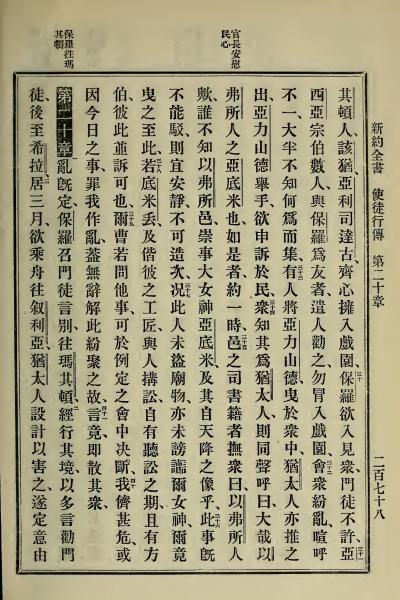 官長安慰
民心
保羅往瑪
其頓
新約全書 使徒行傳 第二十章 二百七十八
其頓人該猶亞利司達古齊心擁入戲園保羅欲入見衆門徒不許亞
西亞宗伯數人與保羅爲友者遣人勸之勿冒入戲園會衆紛亂喧呼
不一大半不知何爲而集有人將亞力山德曳於衆中猶太人亦推之
出亞力山德舉手欲申訴於民衆知其爲猶太人則同聲呼曰大哉以
弗所人之亞底米也如是者約一時邑之司書籍者撫衆曰以弗所人
歟誰不知以弗所邑崇事大女神亞底米及其自天降之像乎此事旣
不能駁則宜安靜不可造次況此人未盜廟物亦未謗讟爾女神爾竟
曳之至此若底米丢及偕彼之工匠與人搆訟自有聽訟之期且有方
伯彼此並訴可也爾曹若問他事可於例定之會中決斷我儕甚危或
因今日之事罪我作亂蓋無辭解此紛聚之故言竟卽散其衆
第二十章亂旣定保羅召門徒言別往瑪其頓經行其境以多言勸門
徒後至希拉居三月欲乘舟往叙利亞猶太人設計以害之遂定意由